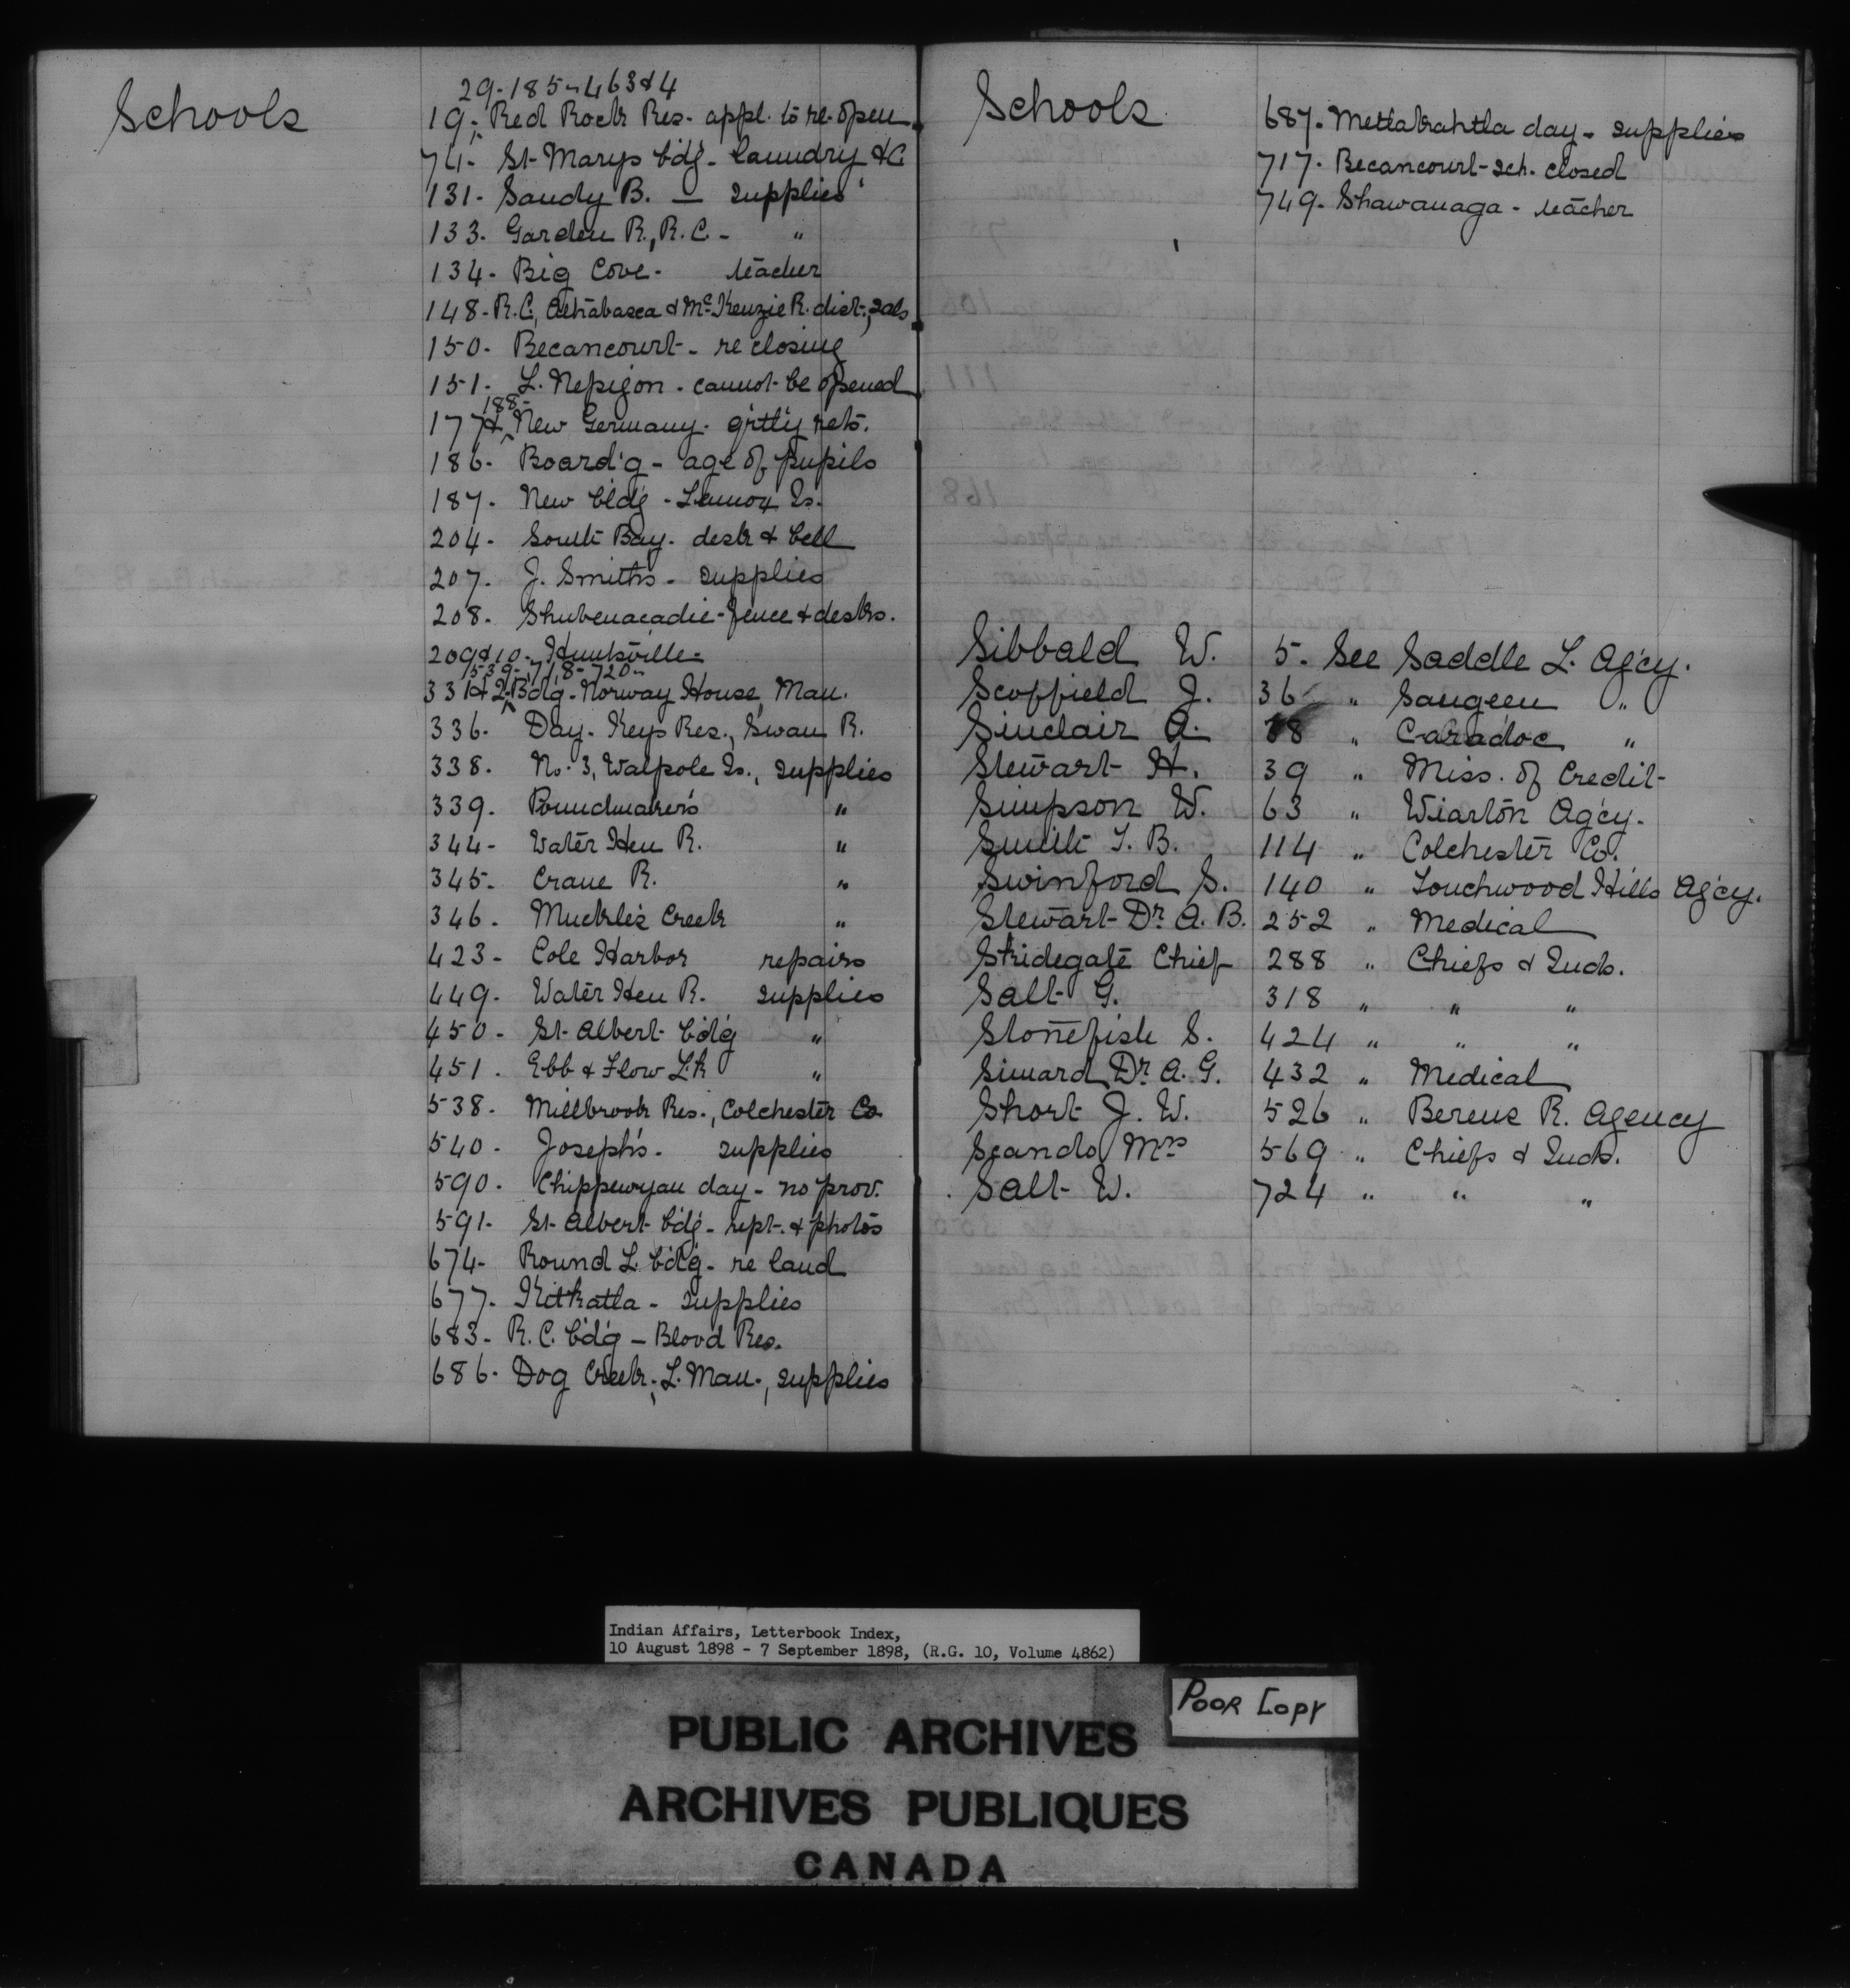 Schools
29-185-463&4
19- Red Rock Res- appl. to re-open
74- St Marys bd'g- laundry &c
131- Sandy B. — supplies
133- Garden R., R.C. - "
134- Big Cove- teacher
148- R.C., Athabasca & McKenzie R. dist., sals
150- Becancourt- re closing
151- L. Nepigon- cannot be opened
188-
177& New Germany- qrtly rets.
186- Board'g- age of pupils
187- New bldg- Lennox Is.
204- South Bay- desk & bell
207- J. Smiths- supplies
208- Shubenacadie- fence & desks.
209&10- Huntsville-
539-718-720-
331&2- Bdg- Norway House, Man.
336- Day- Keys Res., Swan R.
338- No. 3, Walpole Is., supplies
339- Poundmaker's "
344- Water Hen R. "
345- Crane R. "
346- Muckle's Creek "
423- Cole Harbor repairs
449- Water Hen R. supplies
450- St Albert bd'g "
451- Ebb & Flow Lk "
538- Millbrook Res., Colchester Co.
540- Joseph's- supplies
590- Chippewyan day- no prov.
591- St Albert bd'g- rept. & photos
674- Round L. bd'g- re land
677- Kitkatla- supplies
683- R.C. bd'g- Blood Res.
686- Dog Creek, L. Man., supplies
Schools
687- Metlakahtla day- supplies
717- Becancourt- sch. closed
749- Shawanaga- teacher
Sibbald W. 5- See Saddle L. Ag'cy.
Scoffield J. 36 " Saugeen "
Sinclair A. 38 " Caradoc "
Stewart H. 39 " Miss. of Credit
Simpson W. 63 " Wiarton Ag'cy.
Smith T. B. 114 " Colchester Co.
Swinford S. 140 " Touchwood Hills Ag'cy.
Stewart Dr. A. B. 252 " Medical
Skidegate Chief 288 " Chiefs & Inds.
Salt G. 318 " " "
Stonefish S. 424 " " "
Simard Dr. A. G. 432 " Medical
Short J. W. 526 " Berens R. Agency
Scando Mrs 569 " Chiefs & Inds.
Salt W. 724 " " "
Indian Affairs, Letterbook Index,
10 August 1898 - 7 September 1898, (R.G. 10, Volume 4862)
POOR COPY
PUBLIC ARCHIVES
ARCHIVES PUBLIQUES
CANADA